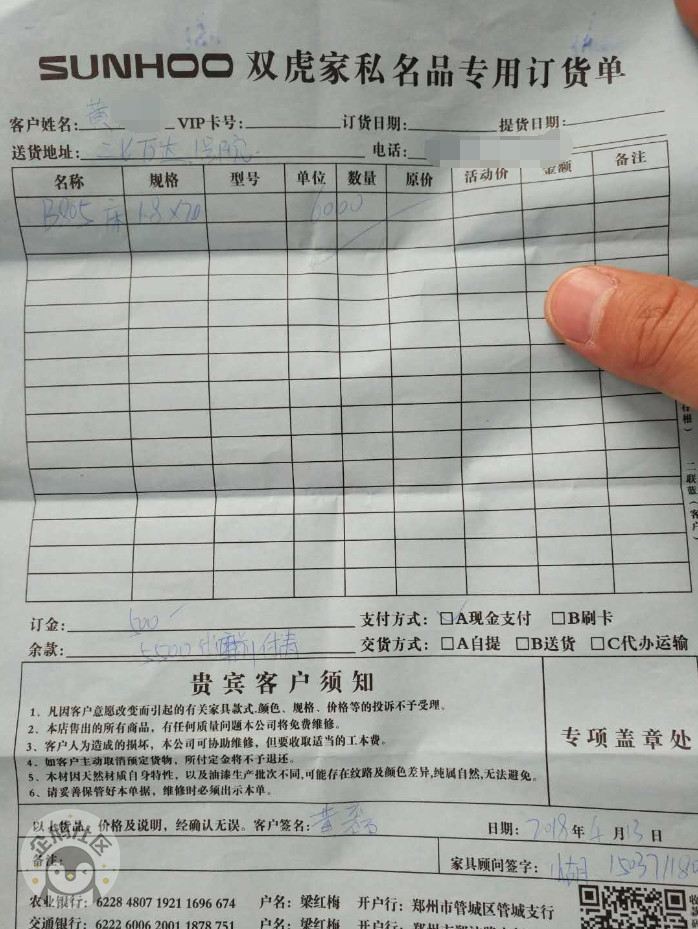 SUNHOO 双虎家私名品专用订货单
客户姓名: 黄 VIP卡号: 订货日期: 提货日期:
送货地址: 万达 号院 电话:
名称 规格 型号 单位 数量 原价 活动价 金额 备注
B905 床 1.8 6000
订金: 500
支付方式: □A现金支付 □B刷卡
余款: 5500 付清
交货方式: □A自提 □B送货 □C代办运输
贵宾客户须知
1、凡因客户意愿改变而引起的有关家具款式、颜色、规格、价格等的投诉不予受理。
2、本店售出的所有商品，有任何质量问题本公司将免费维修。
3、客户人为造成的损坏，本公司可协助维修，但要收取适当的工本费。
4、如客户主动取消预定货物，所付定金将不予退还。
5、木材因天然材质自身特性，以及油漆生产批次不同,可能存在纹路及颜色差异,纯属自然,无法避免。
6、请妥善保管好本单据，维修时必须出示本单。
专项盖章处
以上货品，价格及说明，经确认无误。客户签名: 黄 日期: 2018年4月13日
备注: 家具顾问签字: 150371180
农业银行: 6228 4807 1921 1696 674 户名: 梁红梅 开户行: 郑州市管城区管城支行
交通银行: 6222 6006 2001 1878 751 户名: 梁红梅 开户行:
二联蓝(客户)
企鹅社区